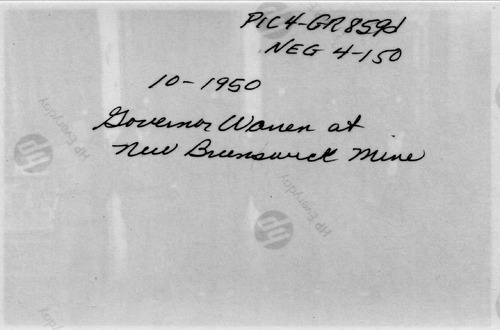 PIC 4-GR 859d
NEG 4-150
10-1950
Governor Warren at
New Brunswick Mine
hp HP Everyday
hp HP Everyday